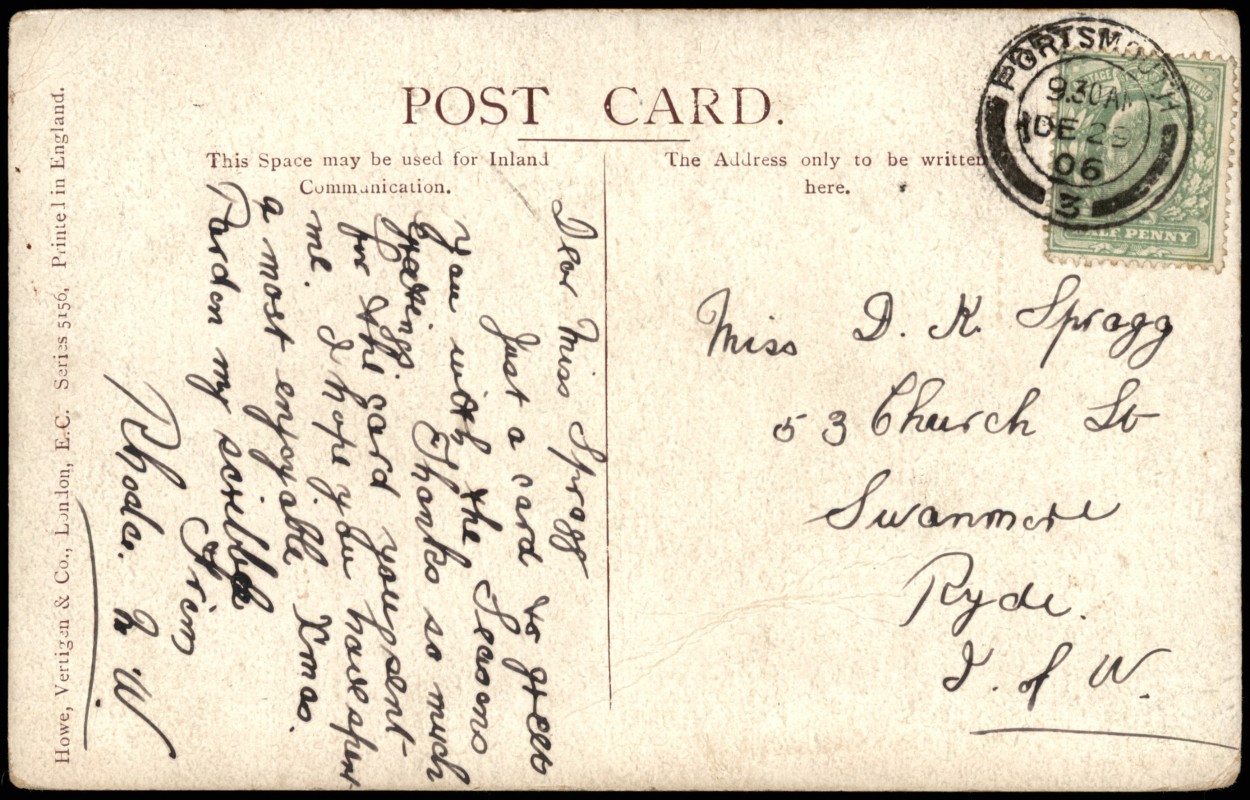 POST CARD.
This Space may be used for Inland
Communication.
The Address only to be written
here.
PORTSMOUTH
9.30 AM
DE 25
06
3
HALF PENNY
Dear Miss Spragg
Just a card to greet
You with the Seasons
greetings. Thanks so much
for the card you sent
me. I hope you have spent
a most enjoyable Xmas.
Parden my scribble
Rhoda. W
Miss D. K. Spragg
53 Church St
Swanmore
Ryde.
I. of W.
Howe, Vertigen & Co., London, E.C. Series 5156, Printed in England.